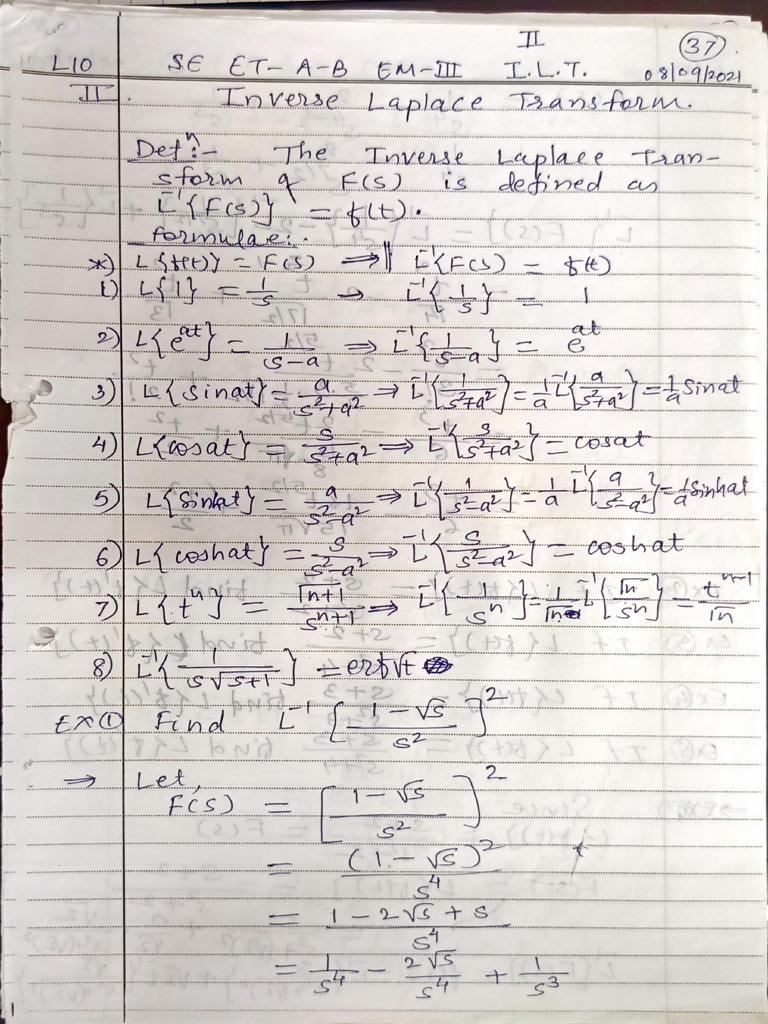 II
37
L10 SE ET-A-B EM-III I.L.T. 08/09/2021
II. Inverse Laplace Transform.
Defⁿ:- The Inverse Laplace Tran-
sform of F(s) is defined as
L⁻¹{F(s)} = f(t).
formulae:.
*) L{f(t)} = F(s) ⇒ L⁻¹{F(s) = f(t)
1) L{1} = 1/s → L⁻¹{1/s} = 1
2) L{e^at} = 1/(s-a) ⇒ L⁻¹{1/(s-a)} = e^at
3) L{sinat} = a/(s²+a²) → L⁻¹{1/(s²+a²)} = 1/a L⁻¹{a/(s²+a²)} = 1/a sinat
4) L{cosat} = s/(s²+a²) ⇒ L⁻¹{s/(s²+a²)} = cosat
5) L{sinhat} = a/(s²-a²) ⇒ L⁻¹{1/(s²-a²)} = 1/a L⁻¹{a/(s²-a²)} = 1/a sinhat
6) L{coshat} = s/(s²-a²) ⇒ L⁻¹{s/(s²-a²)} = coshat
7) L{tⁿ} = Γn+1/sⁿ⁺¹ ⇒ L⁻¹{1/sⁿ} = 1/Γn L⁻¹{Γn/sⁿ} = tⁿ⁻¹/Γn
8) L⁻¹{1/(s√s+1)} = erf√t
EX① Find L⁻¹[(1-√s)/s²]²
⇒ Let,
F(s) = [(1-√s)/s²]²
= (1-√s)²/s⁴
= (1-2√s+s)/s⁴
= 1/s⁴ - 2√s/s⁴ + 1/s³